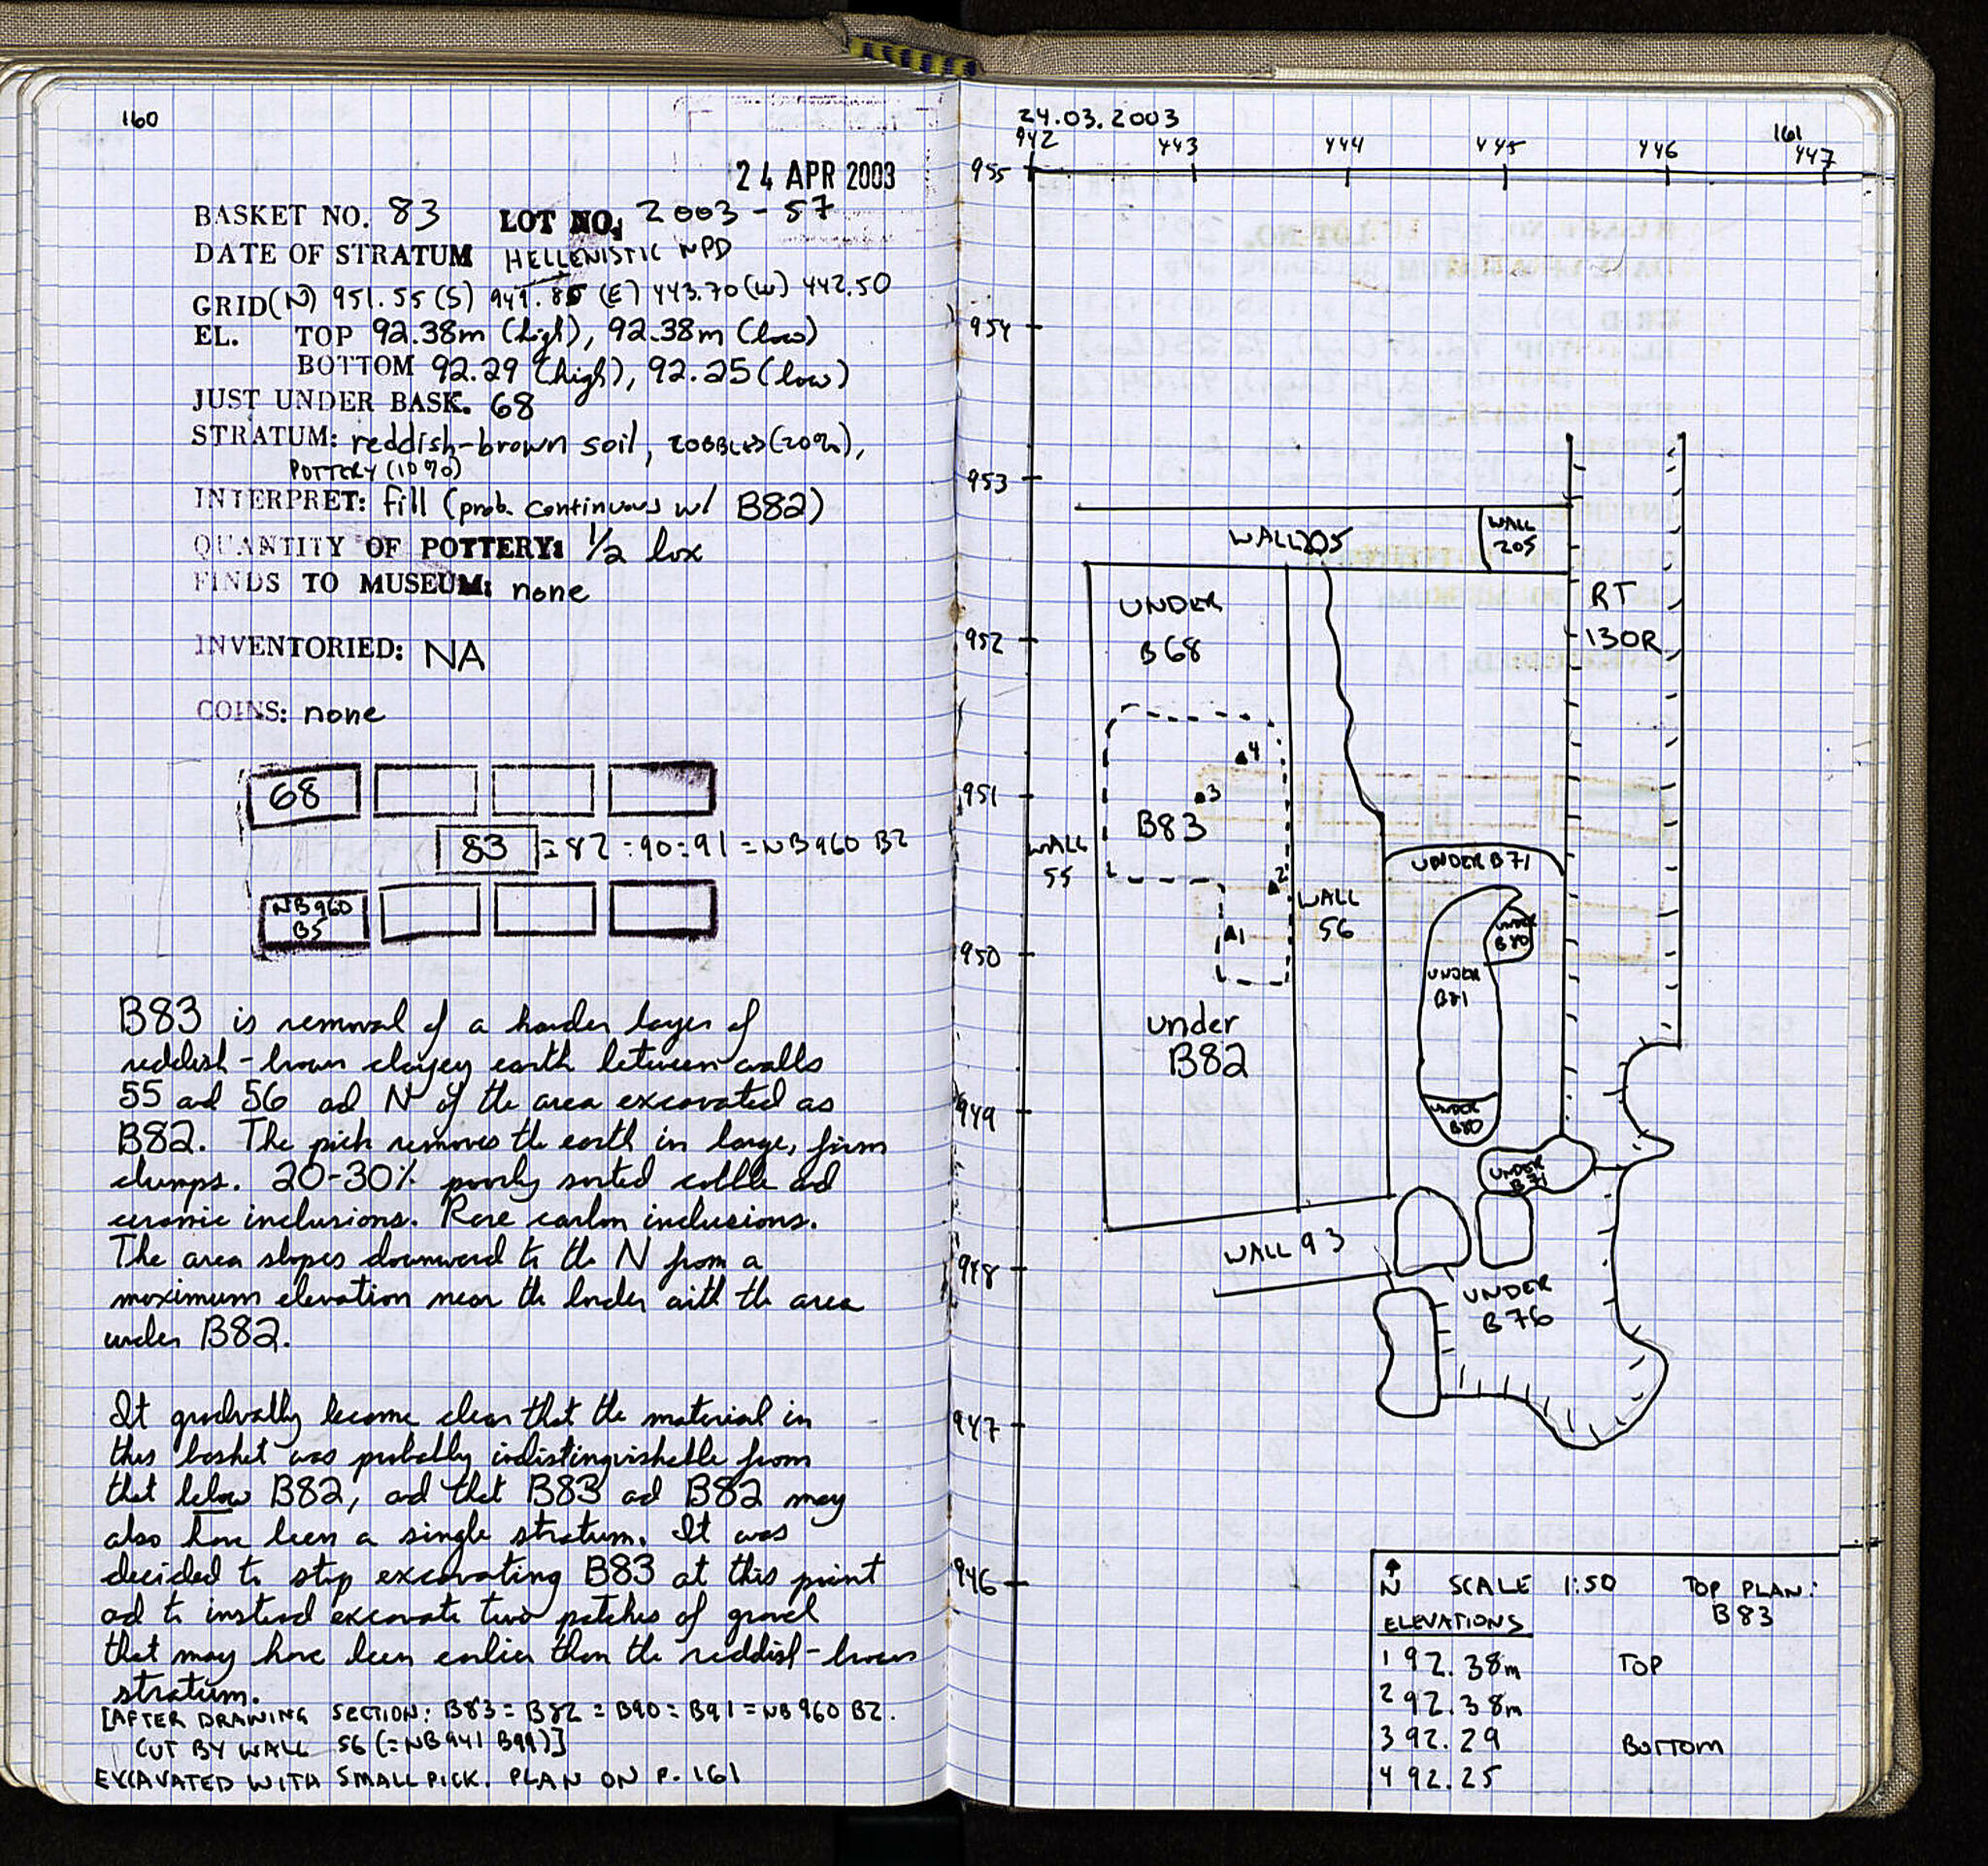 160
24 APR 2003
BASKET NO. 83 LOT NO. 2003-57
DATE OF STRATUM HELLENISTIC NPD
GRID (N) 951.55 (S) 949.85 (E) 443.70 (W) 442.50
EL. TOP 92.38m (high), 92.38m (low)
BOTTOM 92.29 (high), 92.25 (low)
JUST UNDER BASK. 68
STRATUM: reddish-brown soil, COBBLES (20%),
POTTERY (10%)
INTERPRET: fill (prob. continuous w/ B82)
QUANTITY OF POTTERY: 1/2 box
FINDS TO MUSEUM: none
INVENTORIED: NA
COINS: none
68
83 = 82 = 90 = 91 = NB960 B2
NB960
B5
B83 is removal of a harder layer of
reddish-brown clayey earth between walls
55 and 56 and N of the area excavated as
B82. The pick removes the earth in large, firm
clumps. 20-30% poorly sorted cobble and
ceramic inclusions. Rare carbon inclusions.
The area slopes downward to the N from a
maximum elevation near the border with the area
under B82.
It gradually became clear that the material in
this basket was probably indistinguishable from
that below B82, and that B83 and B82 may
also have been a single stratum. It was
decided to stop excavating B83 at this point
and to instead excavate two patches of gravel
that may have been earlier than the reddish-brown
stratum.
[AFTER DRAWING SECTION: B83 = B82 = B90 = B91 = NB960 B2.
CUT BY WALL 56 (=NB941 B99)]
EXCAVATED WITH SMALL PICK. PLAN ON P. 161
24.03.2003
161
942 443 444 445 446 447
955
954
953
952
951
950
949
948
947
946
WALL 205
WALL
205
RT
130R
UNDER
B68
4
3
B83
2
1
WALL
55
WALL
56
UNDER B71
UNDER
B80
UNDER
B81
under
B82
UNDER
B80
UNDER
B71
WALL 93
UNDER
B76
N SCALE 1:50 TOP PLAN:
B83
ELEVATIONS
1 92.38m TOP
2 92.38m
3 92.29 BOTTOM
4 92.25